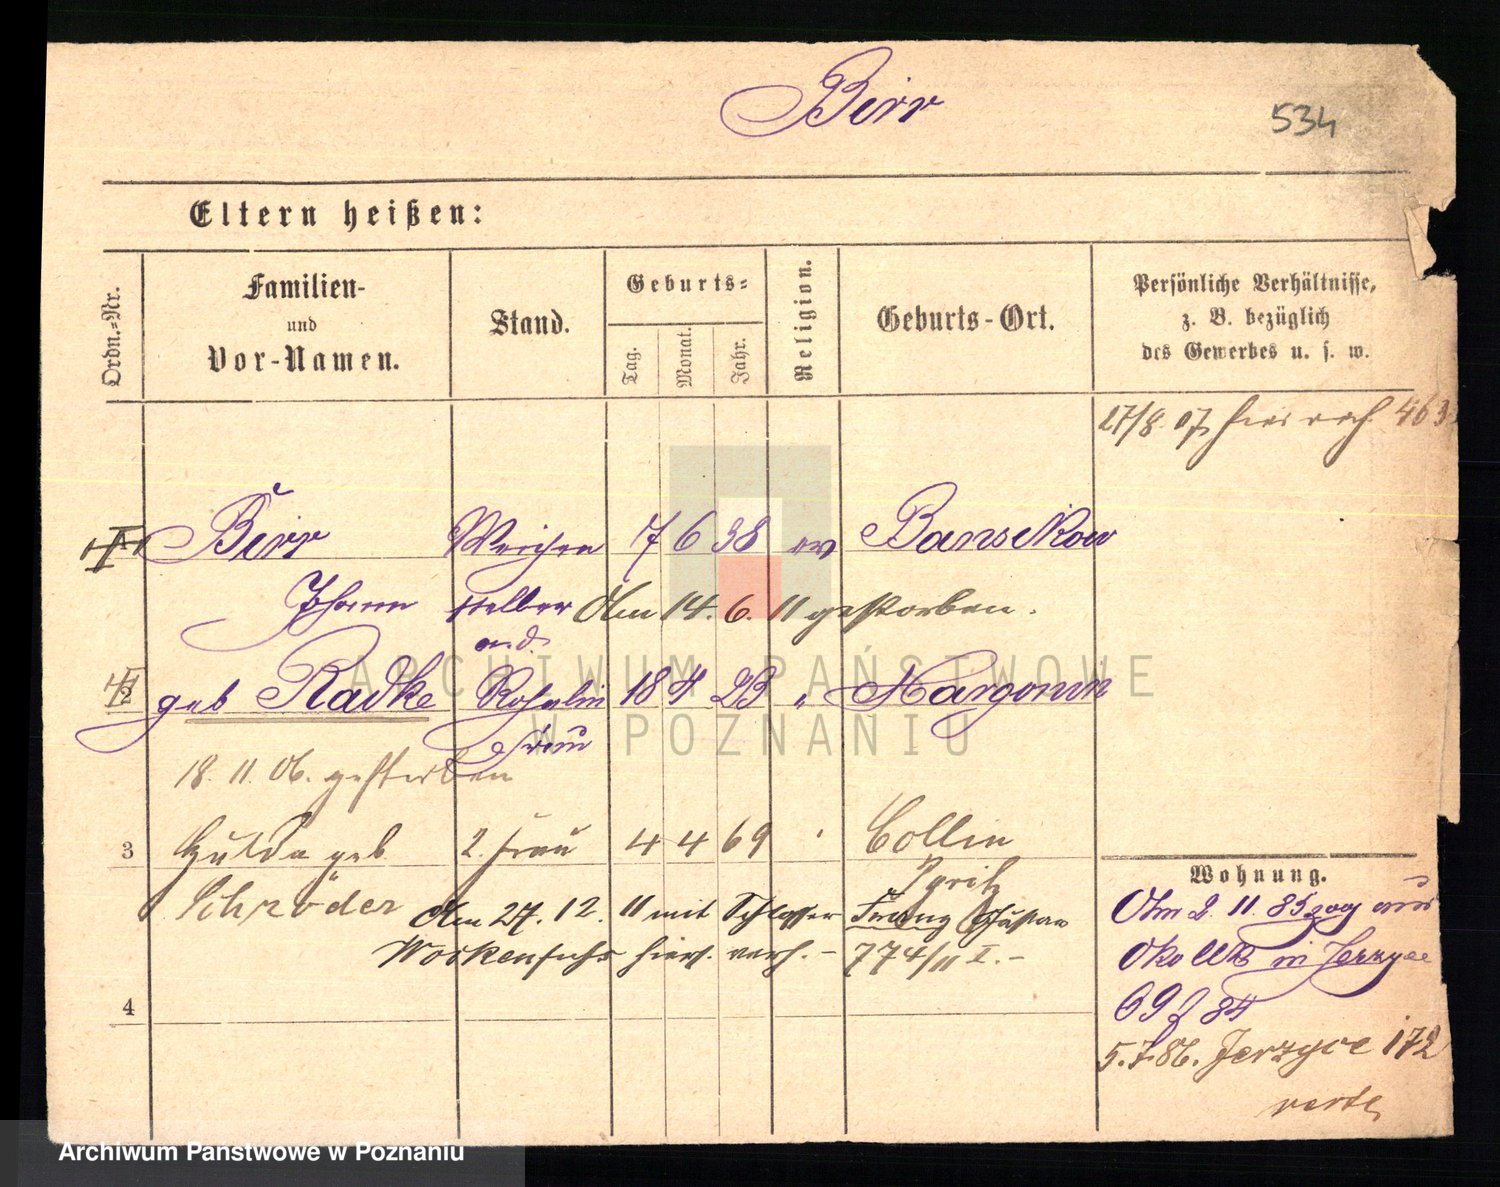 Birr
534
Eltern heißen:
Ordn.-Nr.
Familien-
und
Vor-Namen.
Stand.
Geburts-
Tag.
Monat.
Jahr.
Religion.
Geburts-Ort.
Persönliche Verhältnisse,
z. B. bezüglich
des Gewerbes u. s. w.
27/8 07 hier 463
Birr Weichen 7 6 38 ev
Johann steller Am 14. 6. 11 gestorben.
2 geb Radke 18 4 23 " Margonin
Frau
18. 11. 06. gestorben
3 Hulda geb 2. Frau 4 4 69 " Collin
Schröder Pyritz
Am 27. 12. 11 mit Schlosser Franz Gustav
Wockenfuhs hiers. verh. – 774/11 I. –
4
Wohnung.
Am 2. 11. 85 zog aus
in Jerzyce
69 84
5. 7. 86. Jerzyce 172
verte
ARCHIWUM PAŃSTWOWE
W POZNANIU
Archiwum Państwowe w Poznaniu